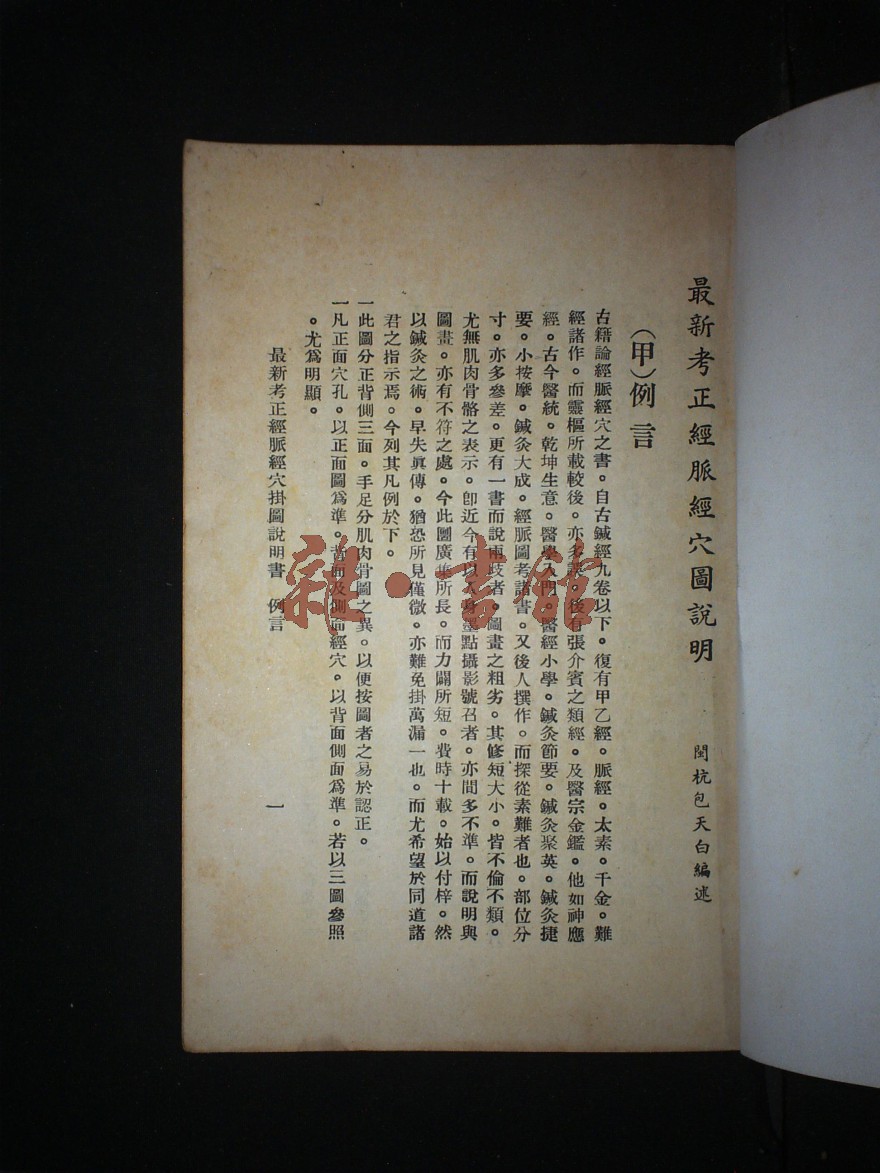 最新考正經脈經穴圖說明
閩杭包天白編述
(甲)例言
古籍論經脈經穴之書。自古鍼經九卷以下。復有甲乙經。脈經。太素。千金。難
經諸作。而靈樞所載較後。亦多誤。後有張介賓之類經。及醫宗金鑑。他如神應
經。古今醫統。乾坤生意。醫學入門。醫經小學。鍼灸節要。鍼灸聚英。鍼灸捷
要。小按摩。鍼灸大成。經脈圖考諸書。又後人撰作。而探從素難者也。部位分
寸。亦多參差。更有一書而說兩歧者。圖畫之粗劣。其修短大小。皆不倫不類。
尤無肌肉骨骼之表示。卽近今有以人身墨點攝影號召者。亦間多不準。而說明與
圖畫。亦有不符之處。今此圖廣集所長。而力闢所短。費時十載。始以付梓。然
以鍼灸之術。早失眞傳。猶恐所見僅微。亦難免掛萬漏一也。而尤希望於同道諸
君之指示焉。今列其凡例於下。
一此圖分正背側三面。手足分肌肉骨圖之異。以便按圖者之易於認正。
一凡正面穴孔。以正面圖爲準。背面及側面經穴。以背面側面爲準。若以三圖參照
。尤爲明顯。
最新考正經脈經穴掛圖說明書 例言
一
雜·書館